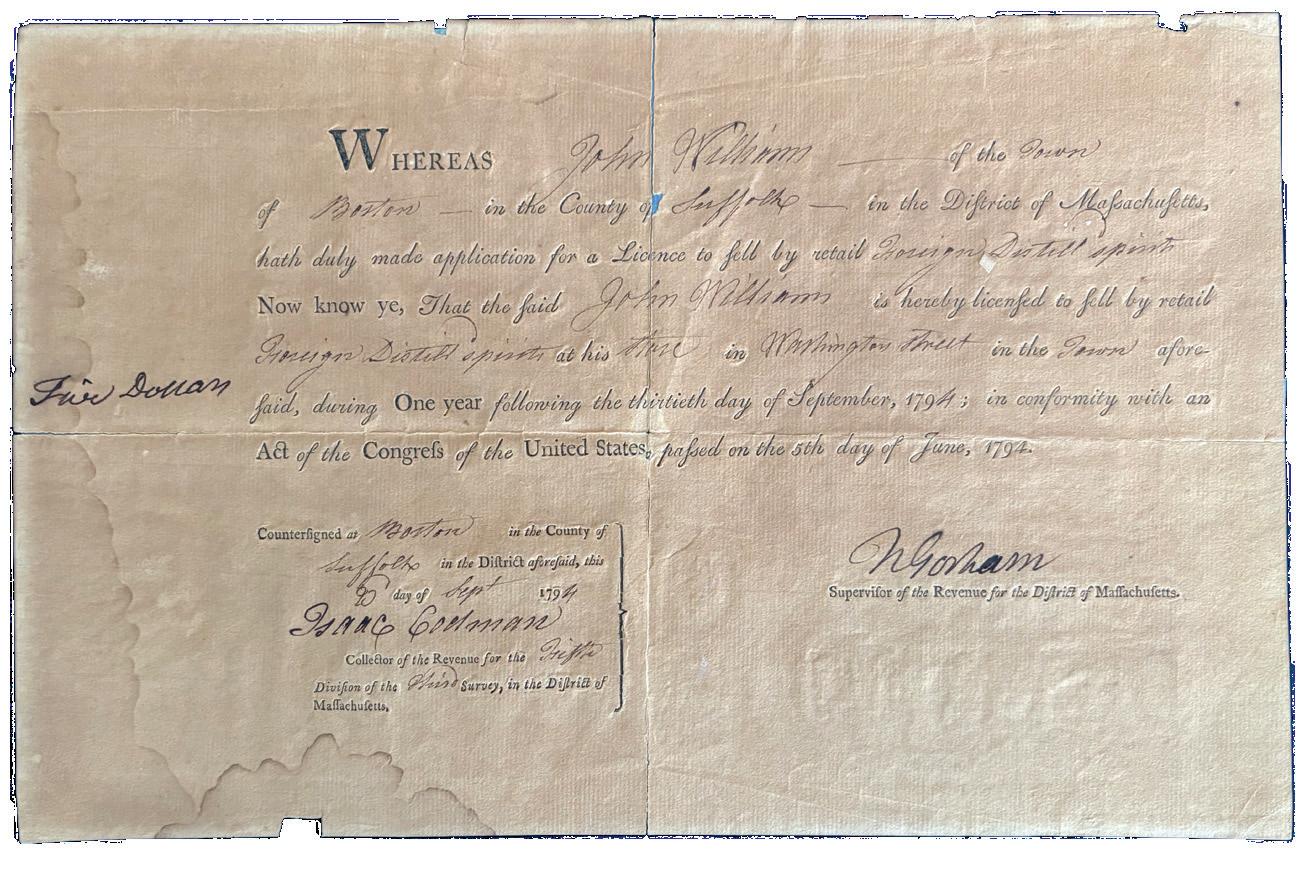 WHEREAS John Williams — of the Town
of Boston — in the County of Suffolk — in the District of Maſſachuſetts,
hath duly made application for a Licence to ſell by retail Foreign Distill'd spirits
Now know ye, That the ſaid John Williams is hereby licenſed to ſell by retail
Foreign Distill'd spirits at his Store in Washington Street in the Town afore-
Five Dollars
ſaid, during One year following the thirtieth day of September, 1794; in conformity with an
Act of the Congreſs of the United States, paſſed on the 5th day of June, 1794.
Counterſigned at Boston in the County of
Suffolk in the Diſtrict aforeſaid, this
day of Sept 1794
Isaac Codman
Collector of the Revenue for the Fifth
Diviſion of the Third Survey, in the Diſtrict of
Maſſachuſetts.
N Gorham
Superviſor of the Revenue for the Diſtrict of Maſſachuſetts.